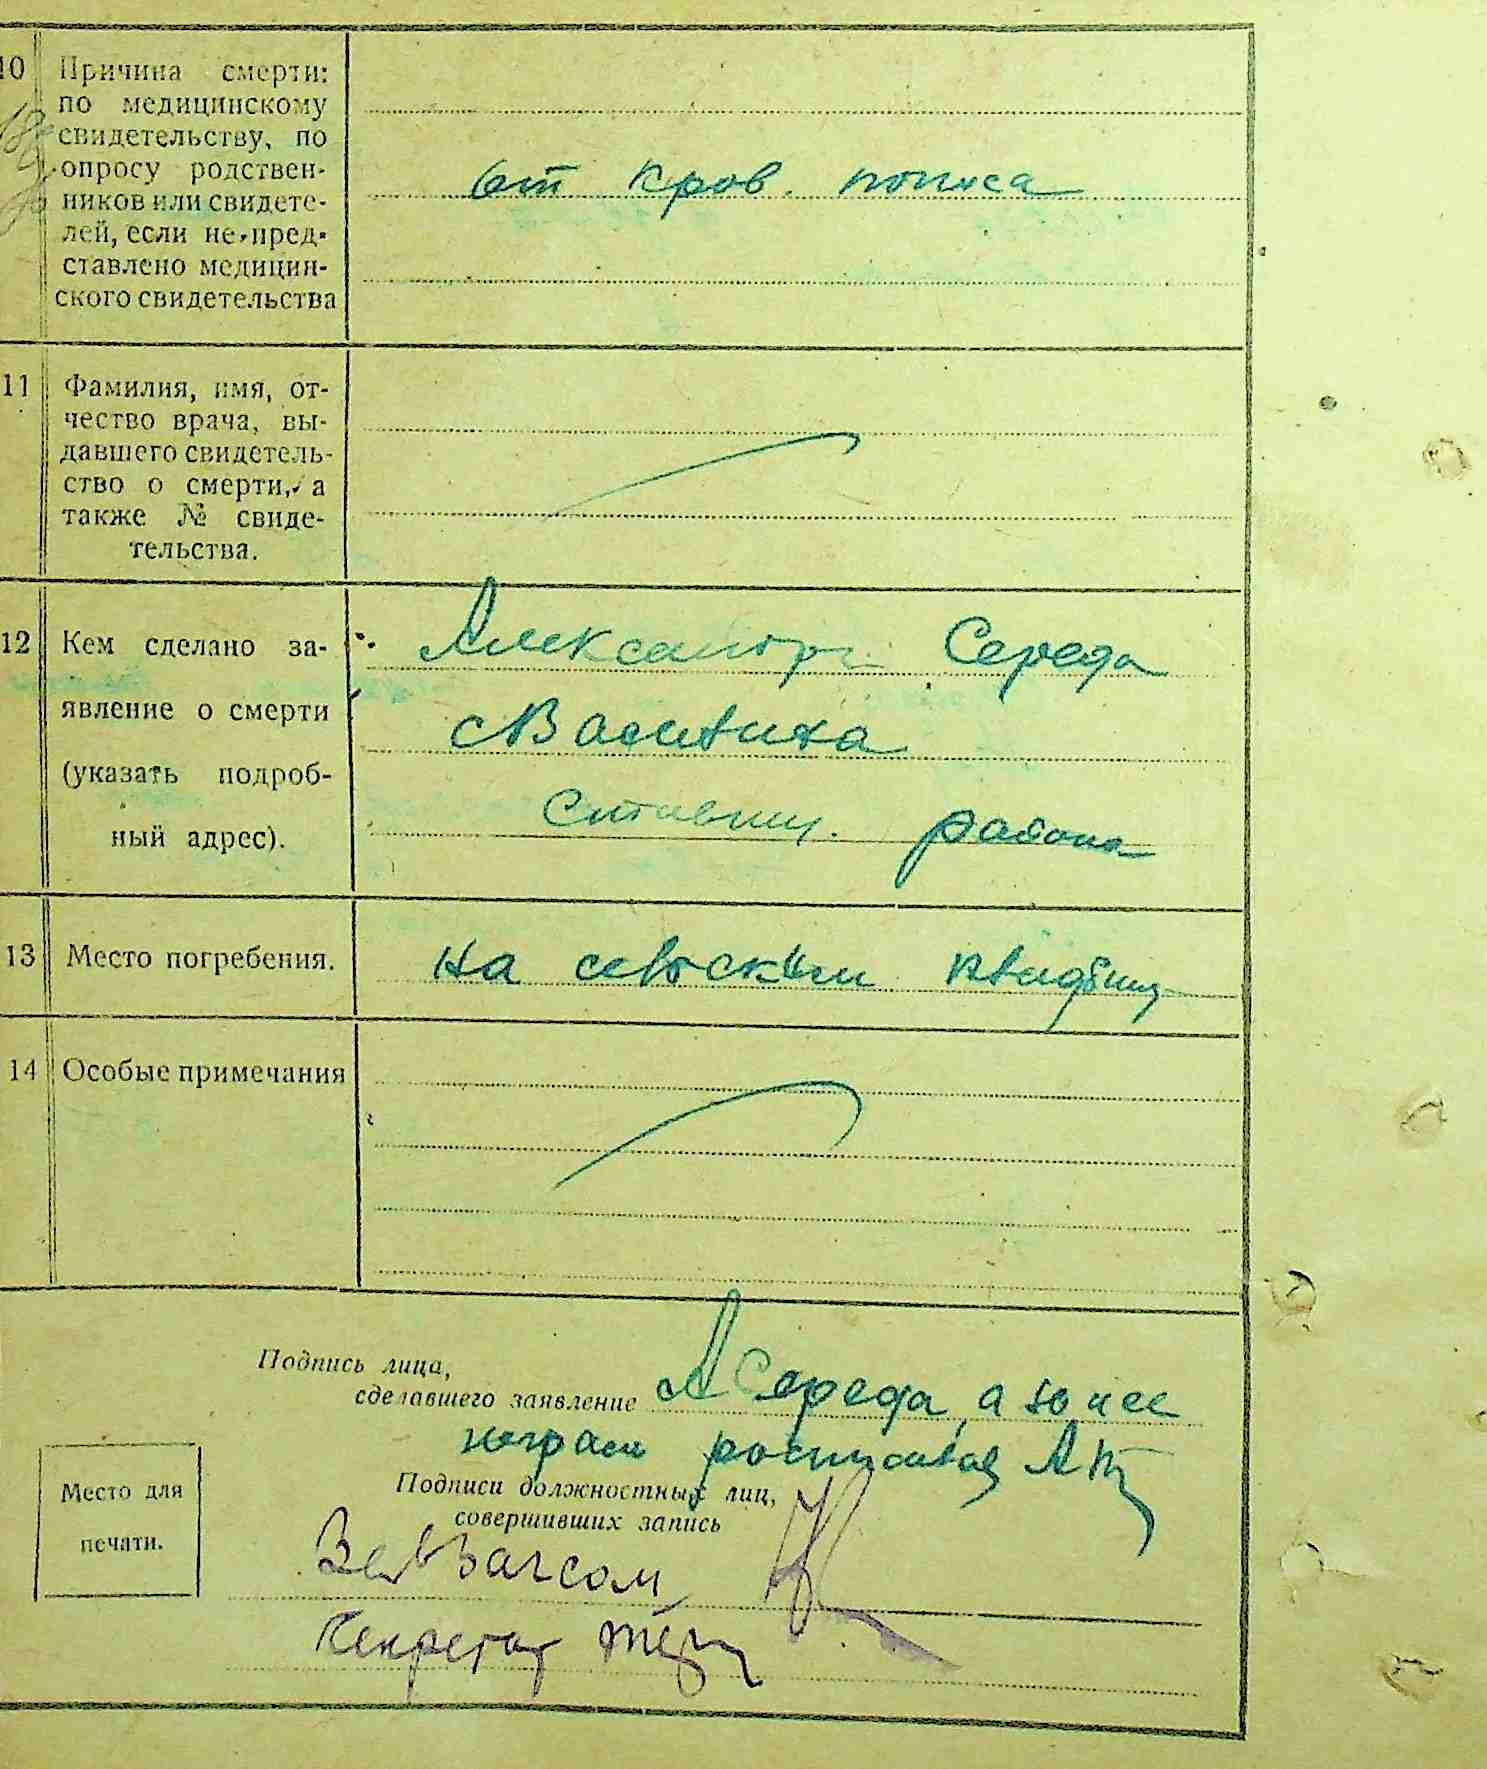 10 Причина смерти:
по медицинскому
свидетельству, по
опросу родствен-
ников или свидете-
лей, если не пред-
ставлено медицин-
ского свидетельства
от кров. поноса
11 Фамилия, имя, от-
чество врача, вы-
давшего свидетель-
ство о смерти, а
также № свиде-
тельства.
12 Кем сделано за-
явление о смерти
(указать подроб-
ный адрес).
Александра Середа
с Василиха
Ставищ. района
13 Место погребения.
на сельском кладбищ
14 Особые примечания
Подпись лица,
сделавшего заявление А Середа, а за нее
неграм росписался
Подписи должностных лиц,
совершивших запись
Место для
печати.
Зав Загсом
Секретар